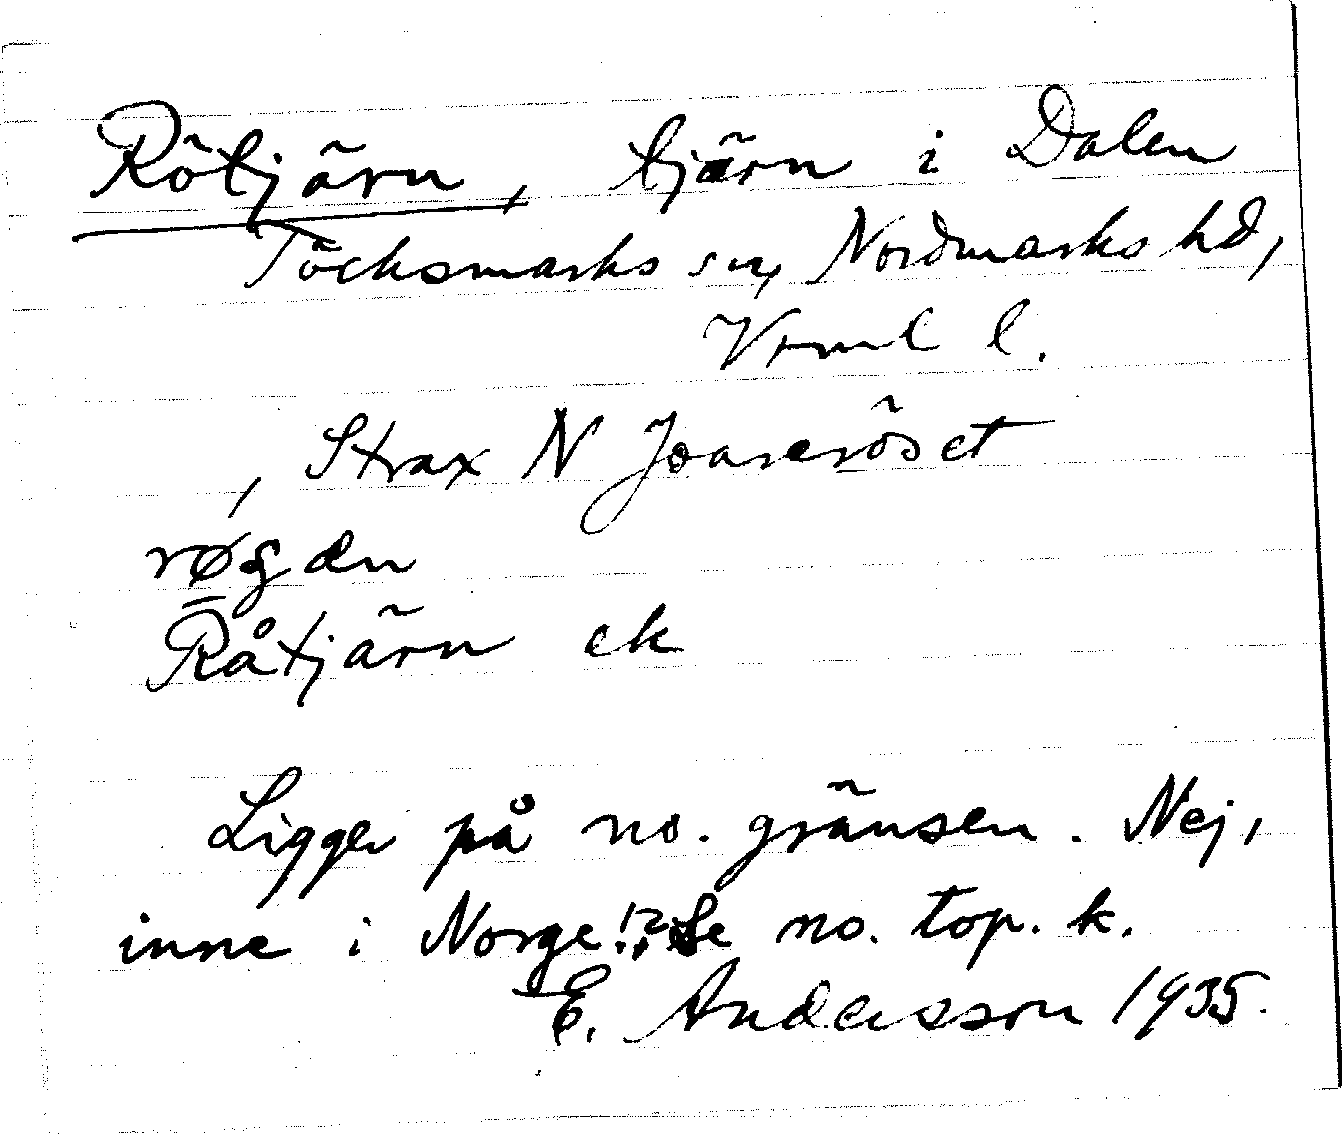 Rötjärn, tjärn i Dalen
Töcksmarks sn, Nordmarks hd,
Vrml l.
, Strax N Joareröset
røg æn
Råtjärn ek
Ligger på no. gränsen. Nej,
inne i Norge!? Se no. top. k.
E. Andersson 1935.